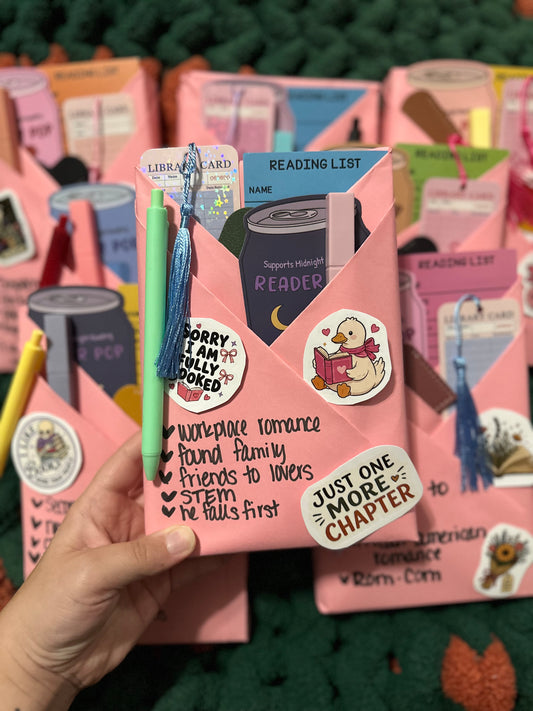 READING LIST
LIBRARY CARD
POP
LIBRARY CARD
Date
READING LIST
NAME
Supports Midnight
READER
READING LIST
LIBRARY
READING LIST
LIBRARY CARD
POP
POP
SORRY
I AM
FULLY
BOOKED
workplace romance
found family
friends to lovers
STEM
he falls first
JUST ONE
MORE
CHAPTER
to
American
romance
Rom-Com